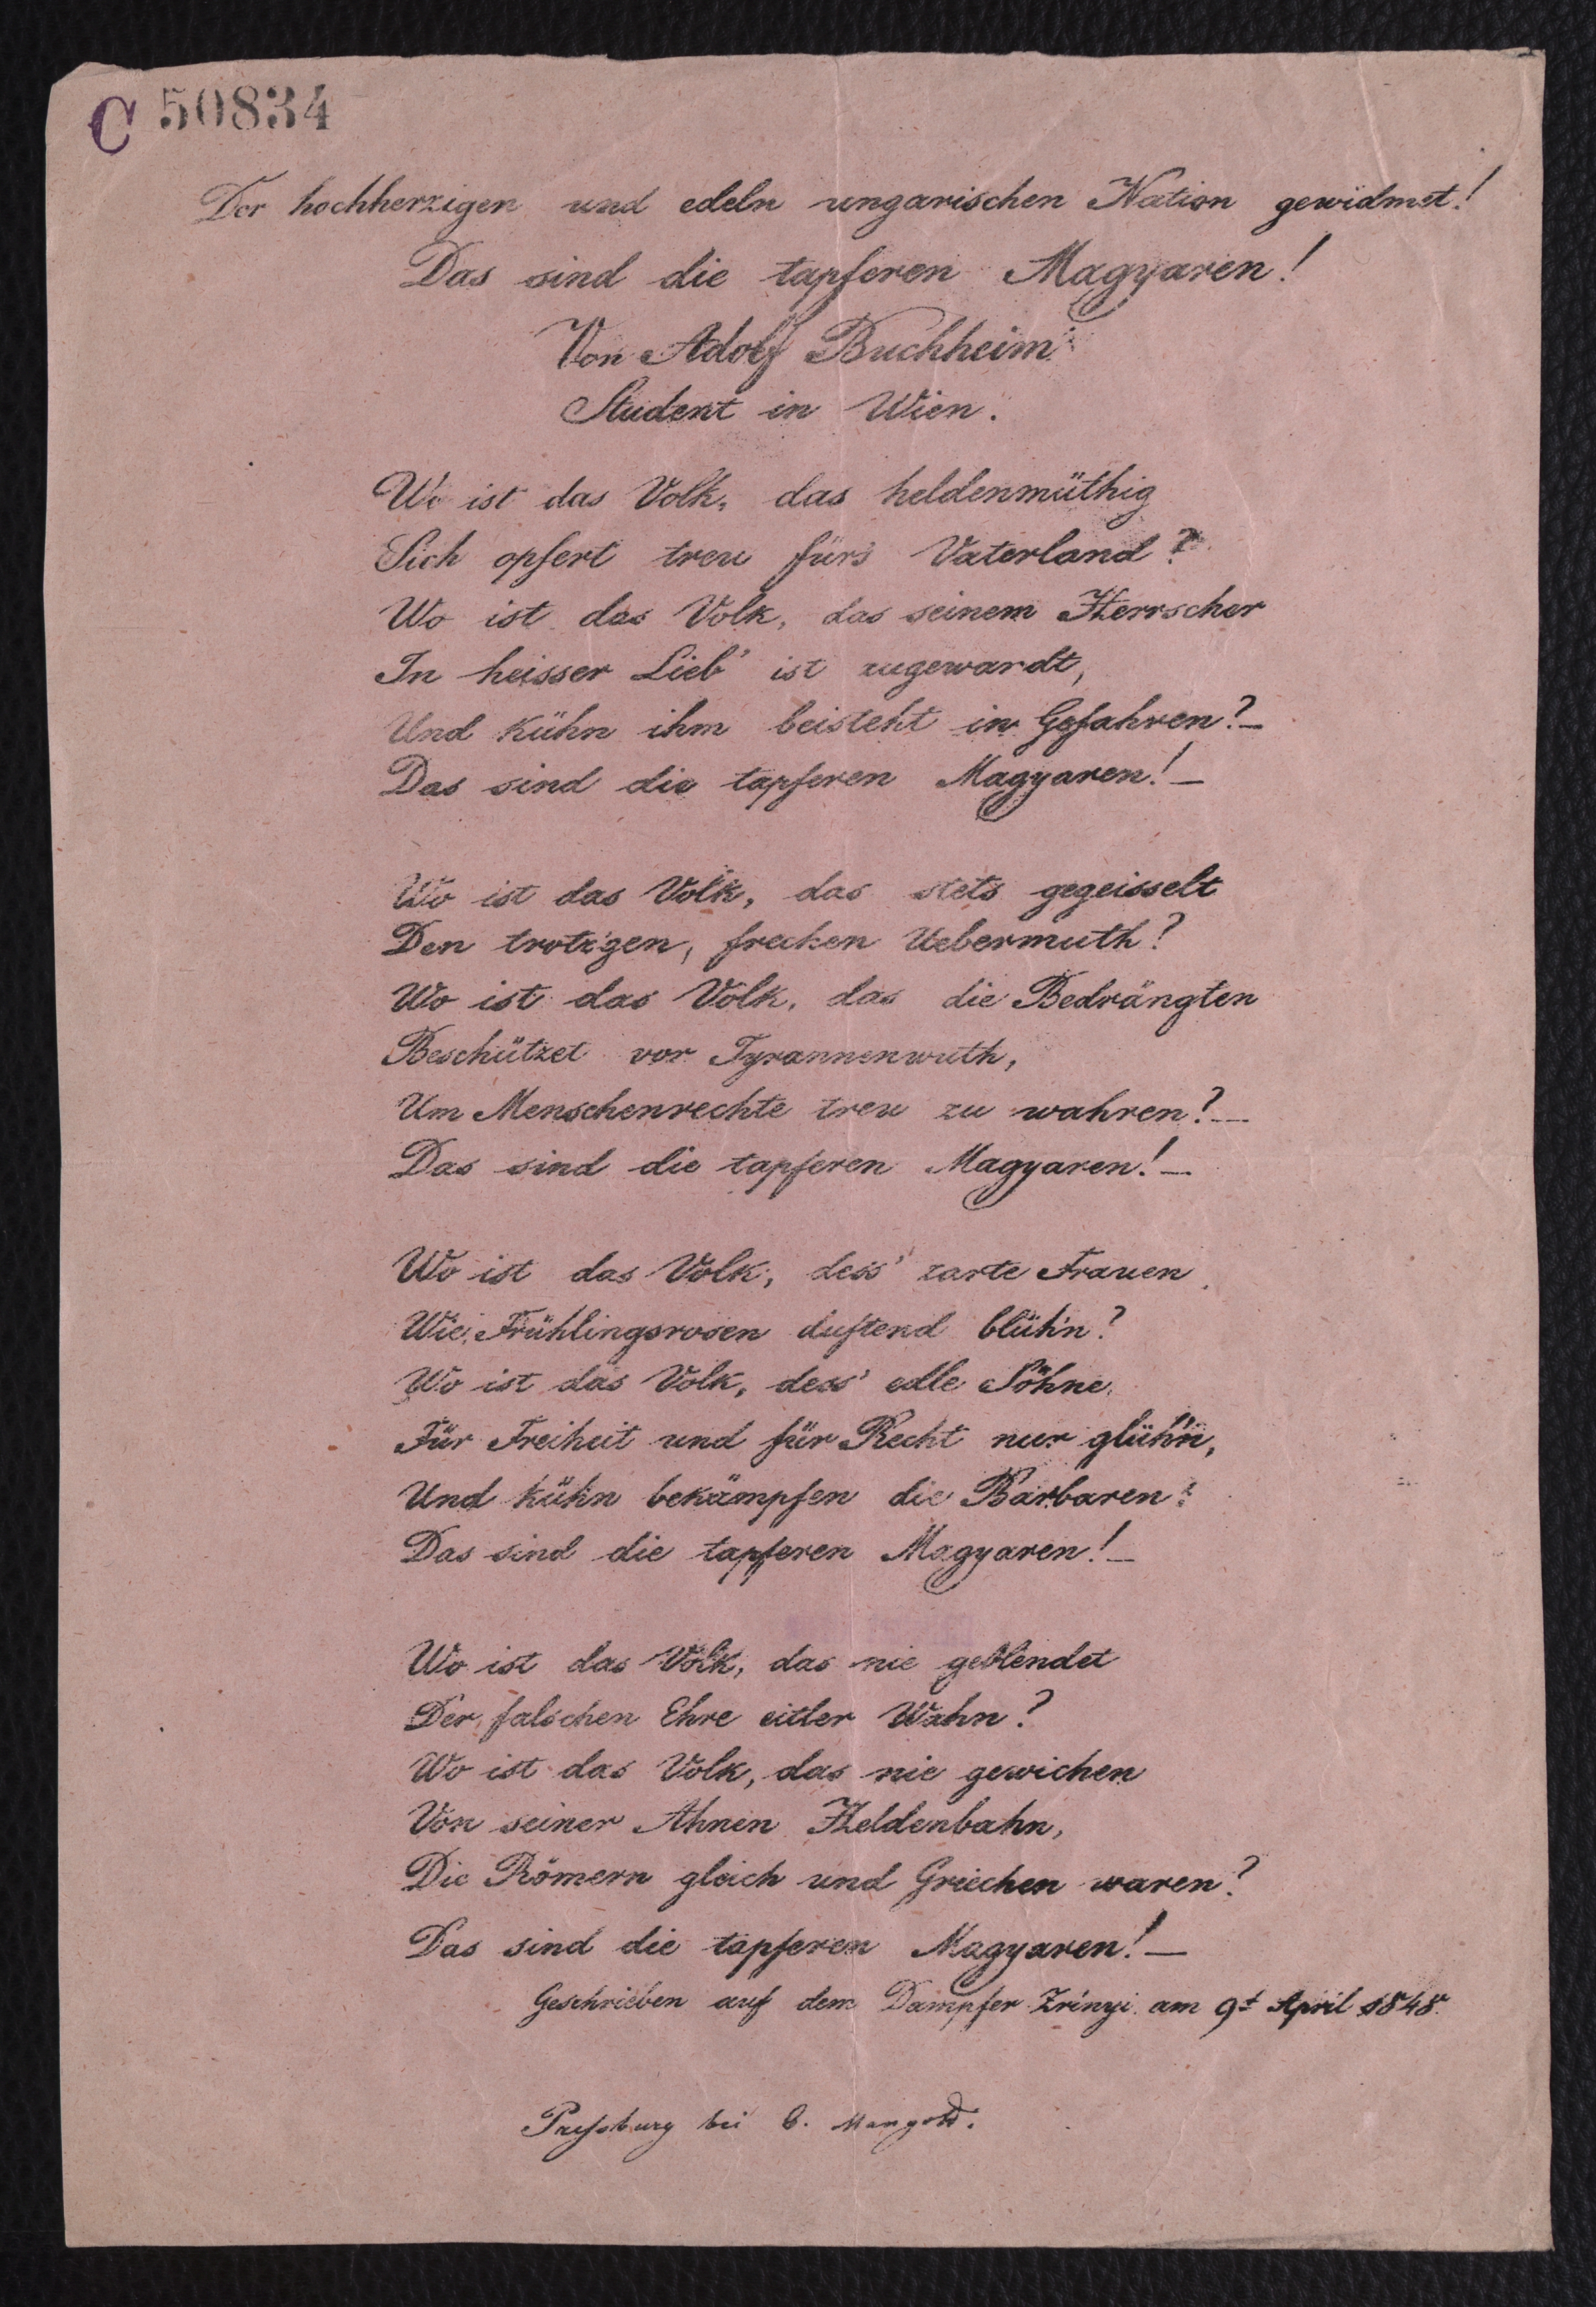 C 50834
Der hochherzigen und edeln ungarischen Nation gewidmet!
Das sind die tapferen Magyaren!
Von Adolf Buchheim
Student in Wien.
Wo ist das Volk, das heldenmüthig
Sich opfert treu für's Vaterland?
Wo ist das Volk, das seinem Herrscher
In heisser Lieb' ist zugewandt,
Und kühn ihm beisteht in Gefahren?—
Das sind die tapferen Magyaren!—
Wo ist das Volk, das stets gegeisselt
Den trotz'gen, frechen Uebermuth?
Wo ist das Volk, das die Bedrängten
Beschützet vor Tyrannenwuth,
Um Menschenrechte treu zu wahren?—
Das sind die tapferen Magyaren!—
Wo ist das Volk, dess' zarte Frauen
Wie Frühlingsrosen duftend blüh'n?
Wo ist das Volk, dess' edle Söhne
Für Freiheit und für Recht nur glüh'n,
Und kühn bekämpfen die Barbaren?
Das sind die tapferen Magyaren!—
Wo ist das Volk, das nie geblendet
Der falschen Ehre eitler Wahn?
Wo ist das Volk, das nie gewichen
Von seiner Ahnen Heldenbahn,
Die Römern gleich und Griechen waren?
Das sind die tapferen Magyaren!—
Geschrieben auf dem Dampfer Zrínyi am 9t April 1848.
Preſsburg bei C. Mangold.